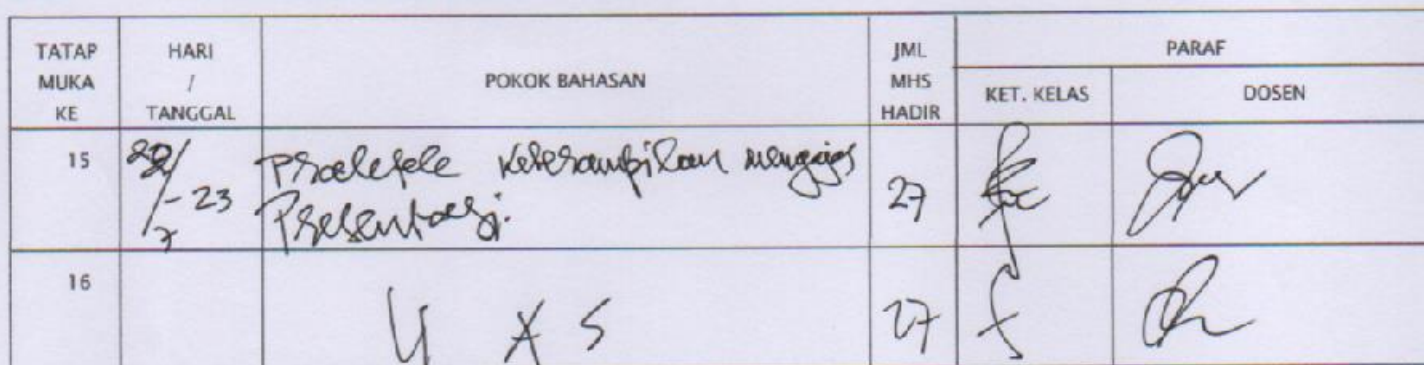 TATAP MUKA KE
HARI / TANGGAL
POKOK BAHASAN
JML MHS HADIR
PARAF
KET. KELAS
DOSEN
15
/7-23
Praktek Keterampilan mengajar
Presentasi.
27
16
U A S
27